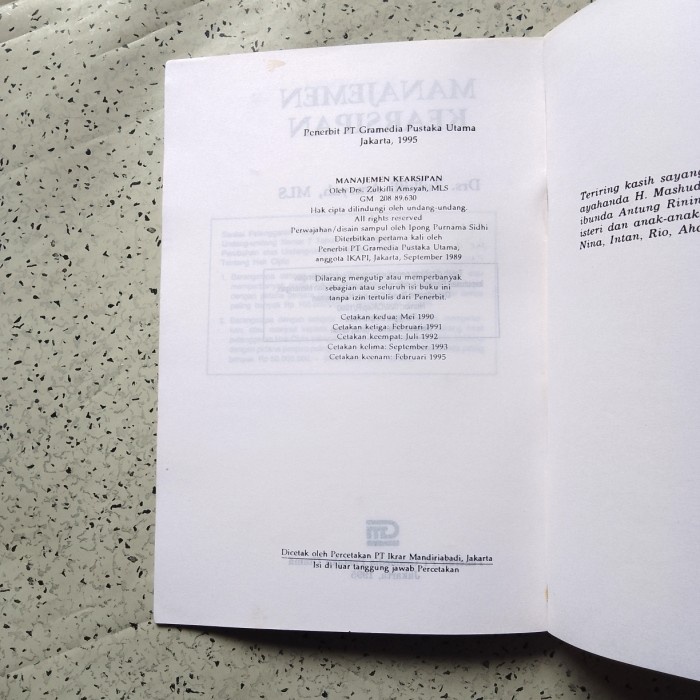 Penerbit PT Gramedia Pustaka Utama
Jakarta, 1995
MANAJEMEN KEARSIPAN
Oleh Drs. Zulkifli Amsyah, MLS
GM 208 89.630
Hak cipta dilindungi oleh undang-undang.
All rights reserved
Perwajahan/disain sampul oleh Ipong Purnama Sidhi
Diterbitkan pertama kali oleh
Penerbit PT Gramedia Pustaka Utama,
anggota IKAPI, Jakarta, September 1989
Dilarang mengutip atau memperbanyak
sebagian atau seluruh isi buku ini
tanpa izin tertulis dari Penerbit.
Cetakan kedua: Mei 1990
Cetakan ketiga: Februari 1991
Cetakan keempat: Juli 1992
Cetakan kelima: September 1993
Cetakan keenam: Februari 1995
Dicetak oleh Percetakan PT Ikrar Mandiriabadi, Jakarta
Isi di luar tanggung jawab Percetakan
Teriring kasih sayang
ayahanda H. Mashud
ibunda Antung Rinin
isteri dan anak-anak
Nina, Intan, Rio,